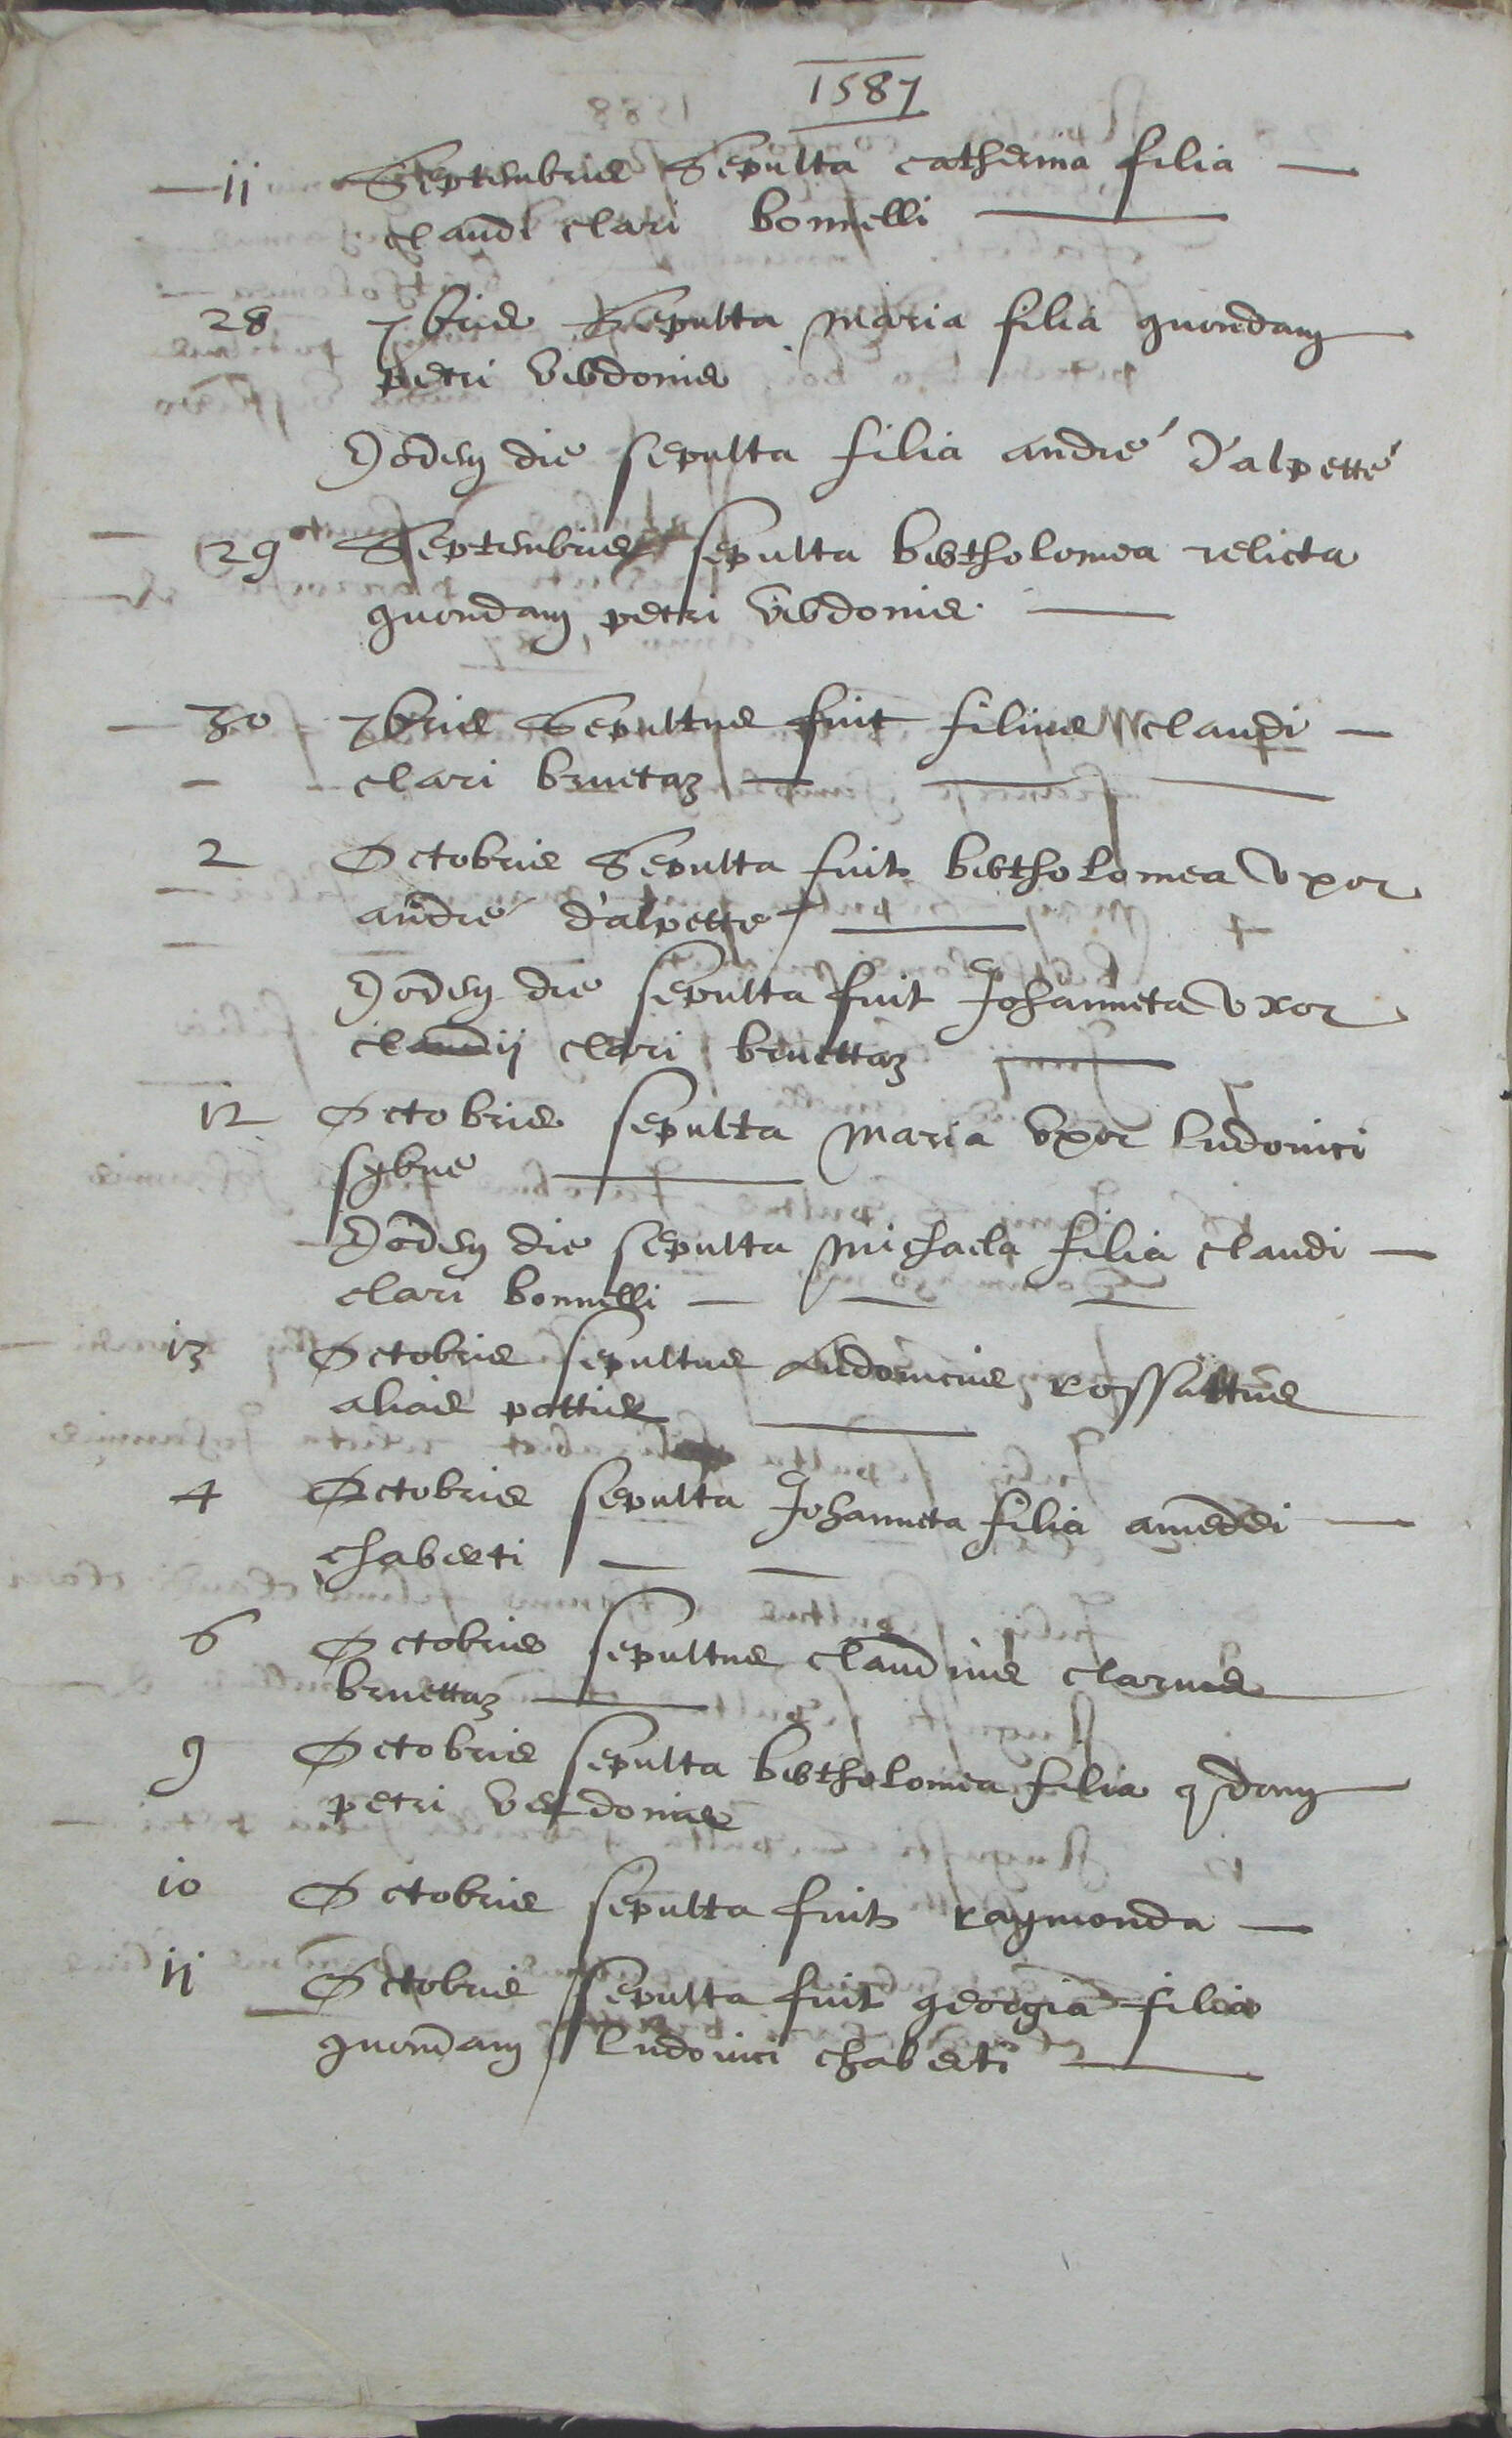 1587
11 Septembris Sepulta catherina filia
claudi clari bonnelli
28 7bris Sepulta maria filia quondam
petri verdonis
Eodem die sepulta filia andré d'alpette
29 Septembris sepulta bertholomea relicta
quondam petri verdonis
30 7bris Sepultus fuit filius claudi
clari bruetaz
2 Octobris Sepulta fuit bertholomea uxor
andré d'alpette
Eodem die sepulta fuit Johanneta uxor
claudij clari bruettaz
12 Octobris sepulta maria uxor ludovici
Eodem die sepulta michaela filia claudi
clari bonnelli
13 Octobris sepultus ludovicus rossattus
alias pottier
4 Octobris sepulta Johanneta filia amedei
chaberti
6 Octobris sepultus claudius clarus
bruettaz
9 Octobris sepulta bertholomea filia qdam
petri verdonis
10 Octobris sepulta fuit raymonda
11 Octobris sepulta fuit georgia filia
quondam ludovici chaberti